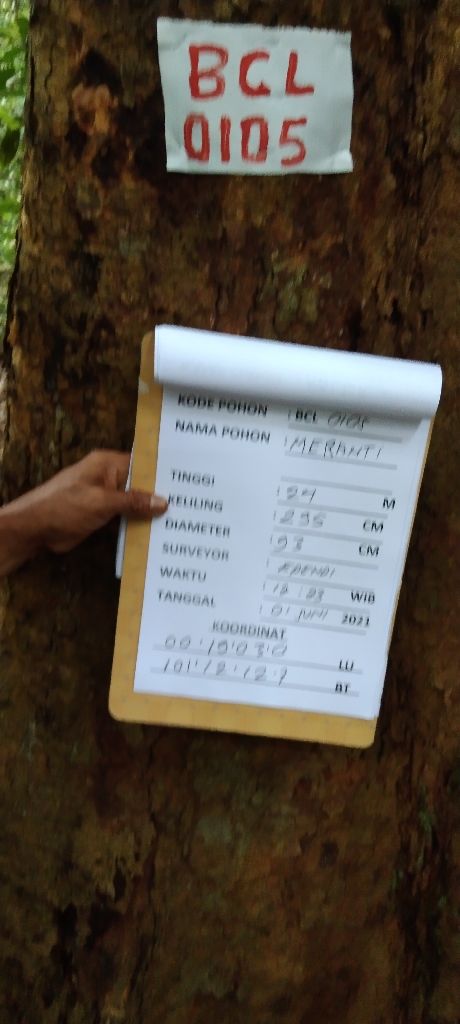 BCL
0105
KODE POHON : BCL 0105
NAMA POHON : MERANTI
TINGGI : 24 M
KELILING : 295 CM
DIAMETER : 93 CM
SURVEYOR : EPENDI
WAKTU : 12 : 23 WIB
TANGGAL : 01 JUNI 2021
KOORDINAT
LU
BT